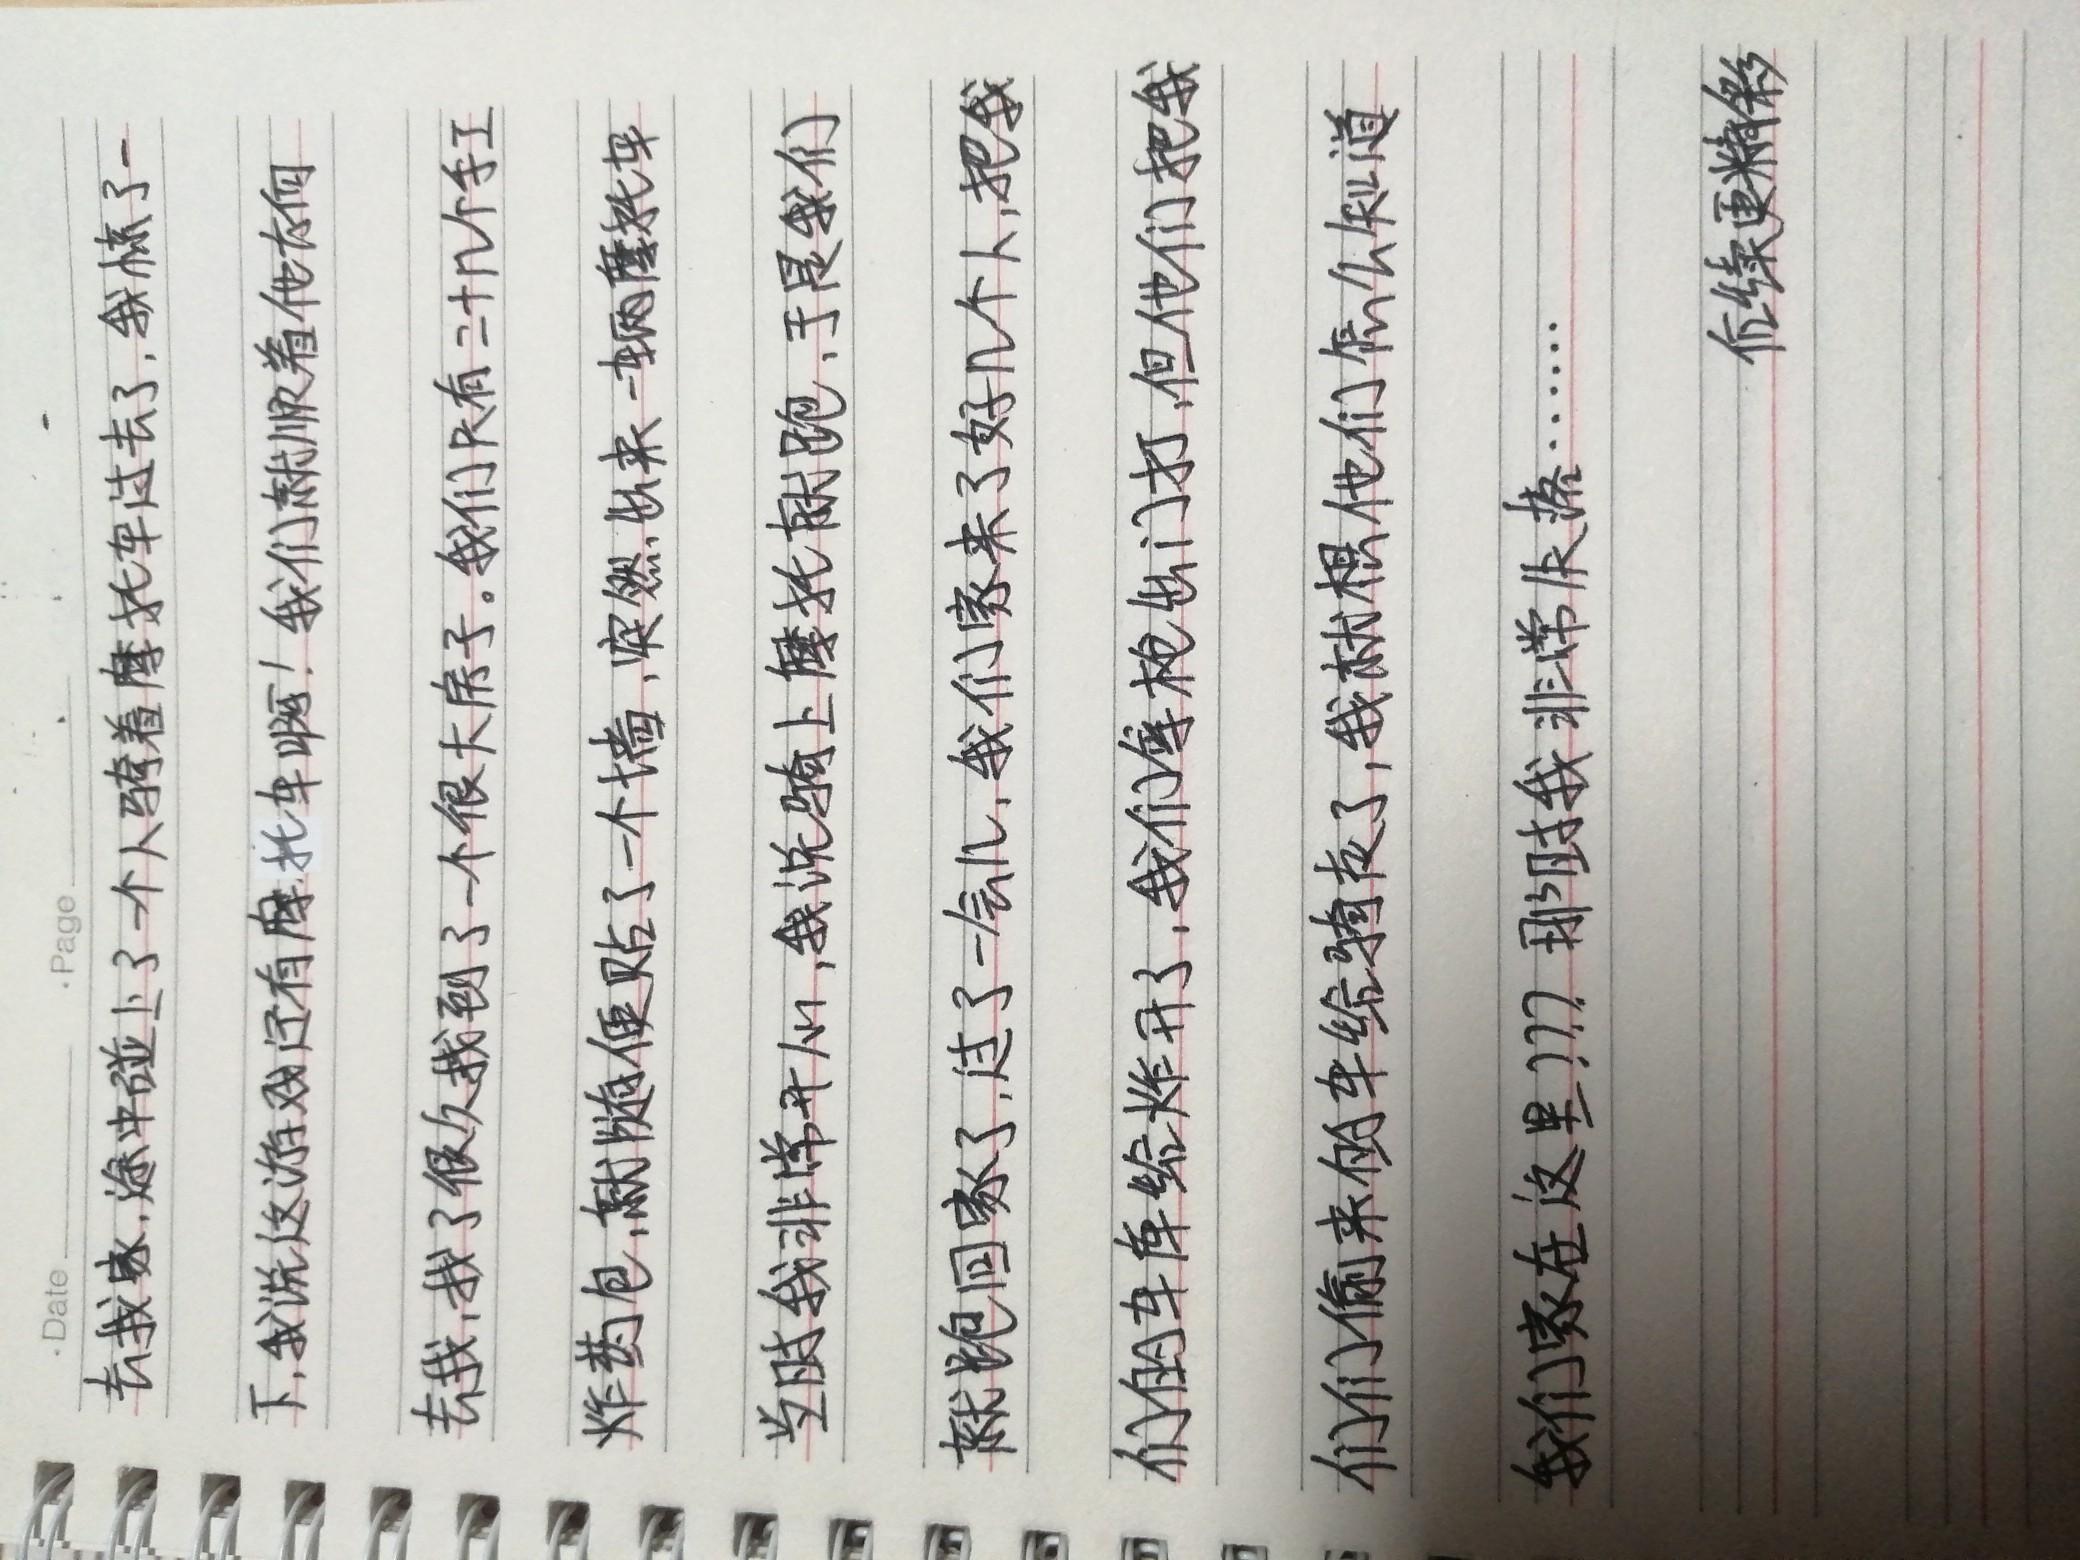 ·Date
·Page
去找家，途中碰上了一个人骑着摩托车过去了，我惊了一
下，我说这游戏还有摩托车啊！我们就顺着他方向
去找，找了很久找到了一个很大房子。我们只有二十几个手工
炸药包，就随便贴了一个墙，突然，出来一辆摩托车
当时我非常开心，我说骑上摩托就跑，于是我们
就跑回家了，过了一会儿，我们家来了好几个人，把我
们的车库给炸开了，我们拿枪出门打，但他们把我
们们偷来的车给骑走了，我就想他们怎么知道
我们家在这里？？？那时我非常失落.......
后续更精彩